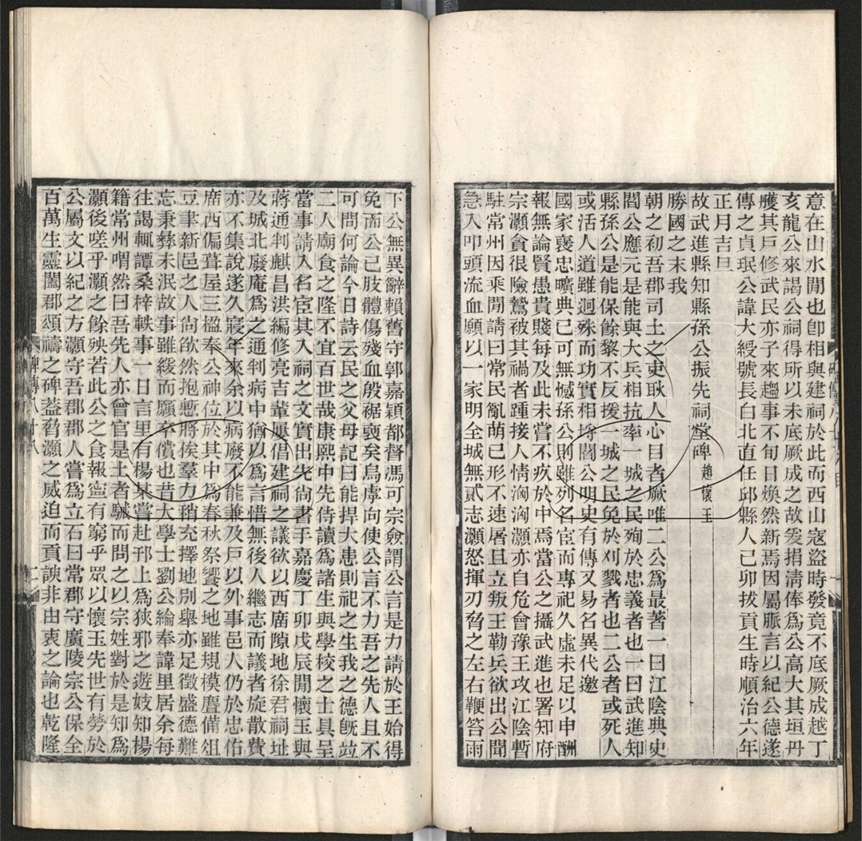 意在山水閒也卽相與建祠於此而西山寇盜時發竟不底厥成越丁
亥龍公來謁公祠得所以未底厥成之故爰捐淸俸爲公高大其垣丹
雘其戶修武民亦子來趨事不旬日煥然新焉因屬脈言以紀公德遂
傳之貞珉公諱大綬號長白北直任邱縣人己卯拔貢生時順治六年
正月吉旦
故武進縣知縣孫公振先祠堂碑 趙懷玉
勝國之末我
朝之初吾郡司土之吏耿人心目者厥唯二公爲最著一曰江陰典史
閻公應元是能與大兵相抗率一城之民殉於忠義者也一曰武進知
縣孫公是能保餘黎不反援一城之民免於刈戮者也二公者或死人
或活人道雖迥殊而功實相埒閻公明史有傳又易名異代邀
國家褒忠曠典已可無憾孫公則雖列名宦而專祀久虛未足以申酬
報無論賢愚貴賤每及此未嘗不疚於中焉當公之攝武進也署知府
宗灝貪很險鷙被其禍者踵接人情洶洶灝亦自危會豫王攻江陰暫
駐常州因乘閒請曰常民亂萌已形不速屠且立叛王勒兵欲出公聞
急入叩頭流血願以一家明全城無貳志灝怒揮刃脅之左右鞭笞雨
下公無異辭賴舊守郭嘉穎都督馮可宗僉謂公言是力請於王始得
免而公已肢體傷殘血殷裾襲矣烏虖向使公言不力吾之先人且不
可問何論今日詩云民之父母記曰能捍大患則祀之生我之德旣竝
二人廟食之隆不宜百世哉康熙中先侍讀爲諸生與學校之士具呈
當事請入名宦其入祠之文實出先尙書手嘉慶丁卯戊辰閒懷玉與
蔣通判麒昌洪編修亮吉輩屢倡建祠之議欲以西廡隙地徐君祠址
及城北廢庵爲之通判病中猶以爲言惜無後人繼志而議者旋散費
亦不集說遂久寢年來余以病廢不能兼及戶以外事邑人仍於忠佑
廟西偏葺屋三楹奉公神位於其中爲春秋祭饗之地雖規模麤備俎
豆聿新邑之人尙欿然抱慙將俟羣力稍充擇地別舉亦足徵盛德難
忘秉彝未泯故事雖緩而願卒償也昔大學士劉公綸奉諱里居余每
往謁輒譚桑梓軼事一日言里有楊某嘗赴邗上爲狹邪之遊妓知楊
籍常州喟然曰吾先人亦曾官是土者駴而問之以宗姓對於是知爲
灝後嗟乎灝之餘殃若此公之食報寧有窮乎眾以懷玉先世有勞於
公屬文以紀之方灝守吾郡郡人嘗爲立石曰常郡守廣陵宗公保全
百萬生靈闔郡頌禱之碑蓋脅灝之威迫而貢諛非由衷之論也乾隆